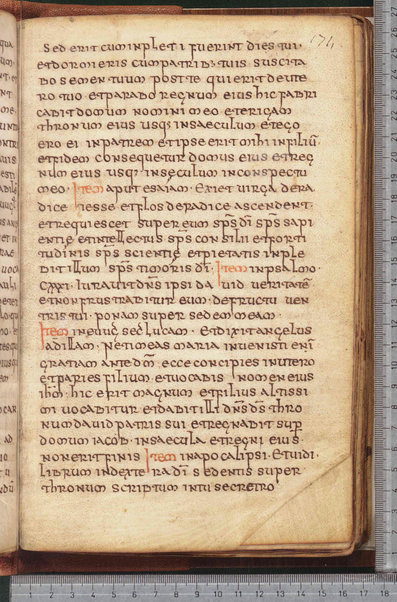 174
Sed erit cum inpleti fuerint dies tui
et dormieris cum patrib; tuis suscita
bo semen tuum post te qui erit de ute
ro tuo et parabo regnum eius hic fabri
cabit domum nomini meo et erigam
thronum eius usq; in saeculum et ego
ero ei in patrem et ipse erit mihi in filiū
et fidem consequetur domus eius et reg
num eius usq; in seculum in conspectu
meo. Item aput esaiam. Exiet uirga de ra
dice iesse et flos de radice ascendent.
et requiescet super eum sp̄s dī sp̄s sapi
entię et intellectus sp̄s consilii et forti
tudinis sp̄s scientię et pietatis inple
bit illum sp̄s timoris dī. Item in psalmo.
cxxxi. Iurauit dn̄s ipsi dauid ueritatē
et non frustrabitur eum. de fructu uen
tris tui. ponam super sedem meam.
Item in euug̅ sec̅ lucam. Et dixit angelus
ad illam. Ne timeas maria inuenisti eni̅
gratiam ante dm̄. ecce concipies in utero
et paries filium et uocabis nomen eius
ihm̄. hic erit magnum et filius altissi
mi uocabitur et dabit illi dn̄s ds̄ thro
num dauid patris sui et regnabit sup̄
domum iacob. in saecula et regni eius
non erit finis Item in apocalipsi. Et uidi.
librum in dextera dī. sedentis super
thronum scriptum intus et retro